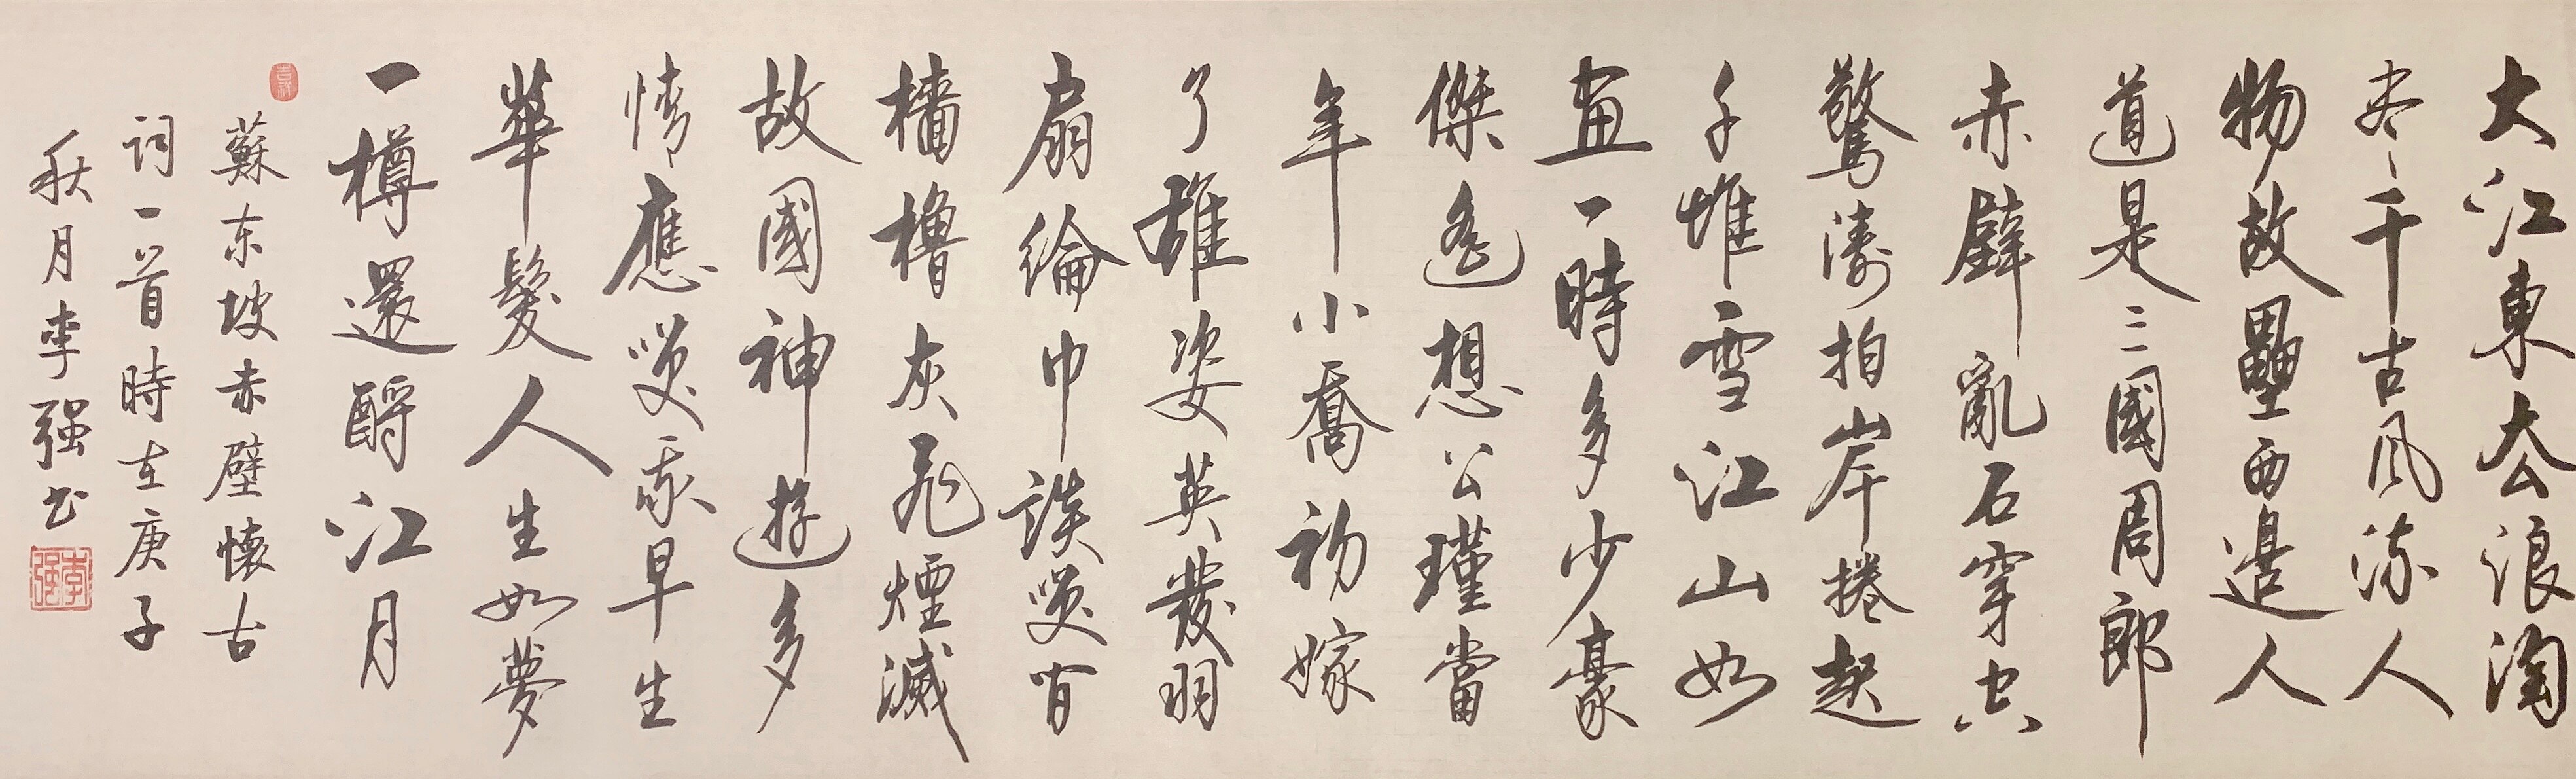 大江東去浪淘
尽千古風流人
物故壘西邉人
道是三國周郎
赤壁亂石穿空
驚濤拍岸捲起
千堆雪江山如
畫一時多少豪
傑遙想公瑾當
年小喬初嫁
了雄姿英發羽
扇綸巾談笑間
檣櫓灰飛煙滅
故國神遊多
情應笑我早生
華髮人生如夢
一樽還酹江月
蘇东坡赤壁懷古
詞一首時在庚子
秋月李强书
吉祥
李强